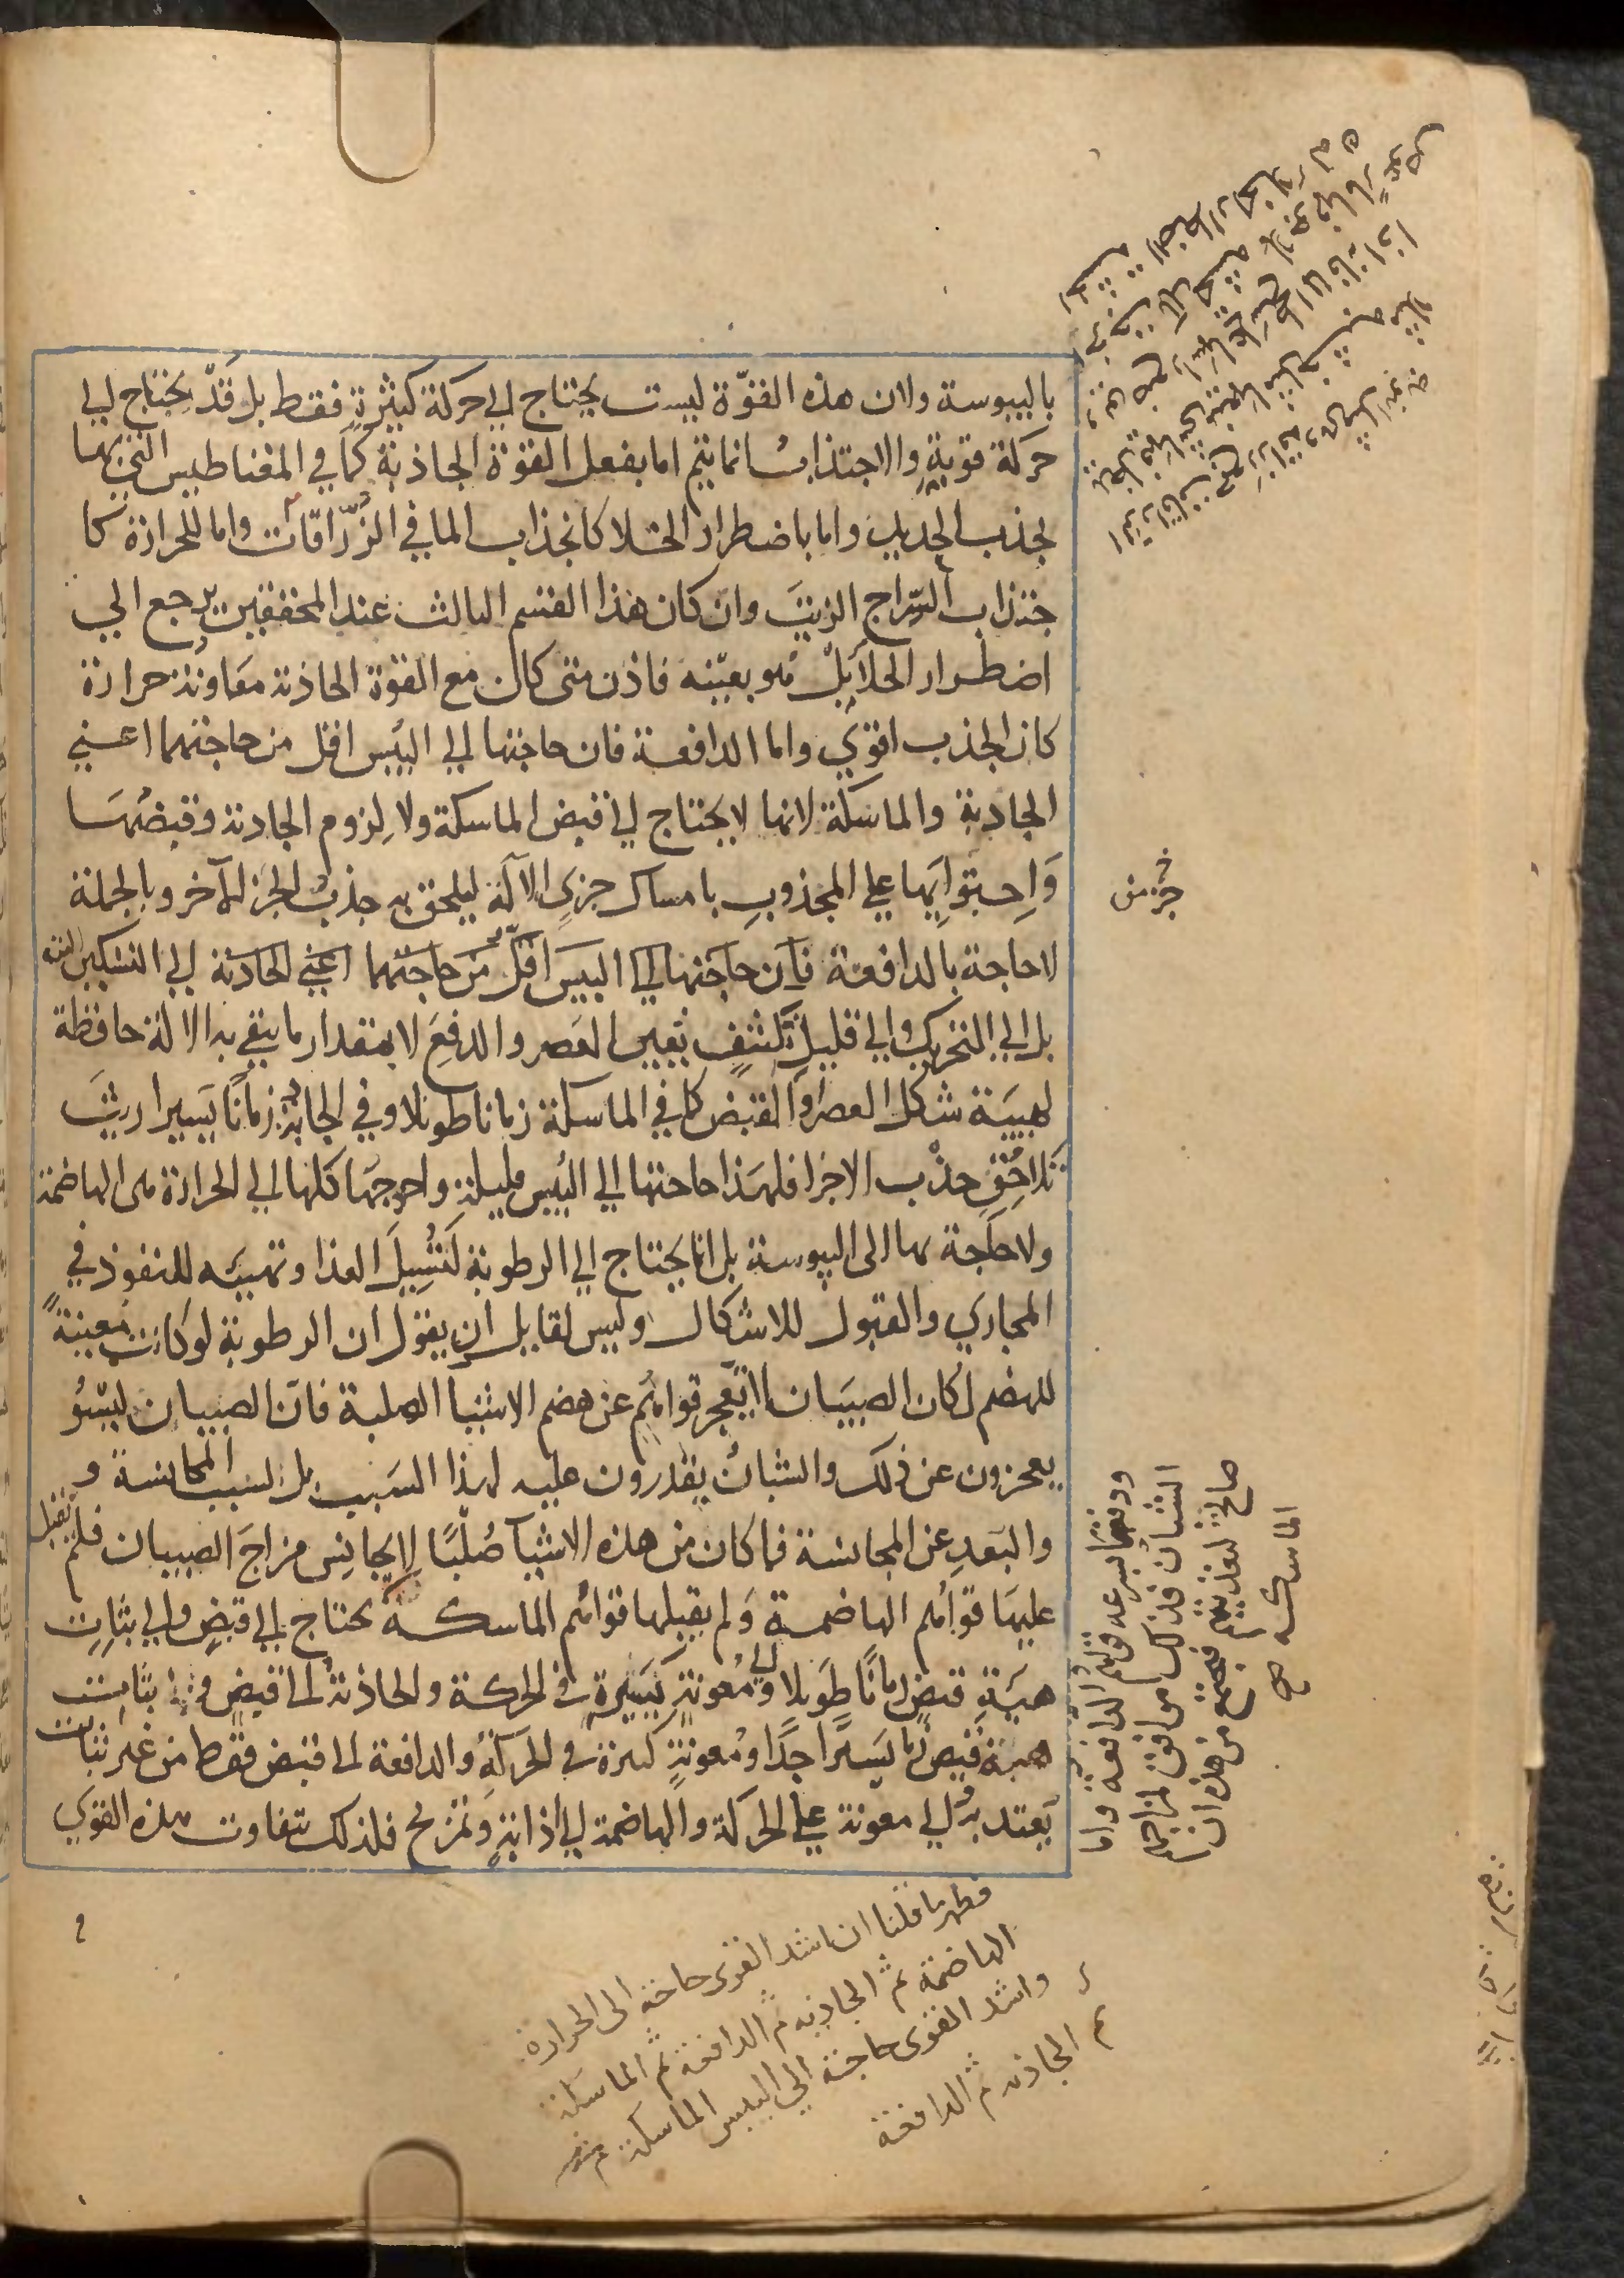 باليبوسة ولان هذه القوّة ليست يحتاج الي حركة كثيرةٍ فقط بل قد يحتاج الي
حركة قويةٍ والاجتذاب انما يتم اما بفعل القوة الجاذبة كما في المغناطيس التي بها
يجذب الحديد واما باضطرار الخلا كانجذاب الما في الزّراقات واما للحرارة كا
جتذاب السّراج الزيتَ وان كان هذا القسم الثالث عند المحققين يرجع الي
اضطرار الخلا بل هُو بعينه فاذن متى كان مع القوة الجاذبة معاونة حرارة
كان الجذب اقوي واما الدافعة فان حاجتها الي اليُبس اقل من حاجتهما اعني
الجاذبة والماسكة لانها لا يحتاج الي قبض الماسكة ولا لِزوم الجاذبة وقبضُهَا
وَاِحتوايها علي المجذوبِ بامساك جزيٍ الآلة ليلحق به جذبُ الجز الآخر وبالجملة
لا حاجة بالدافعة فان حاجتها الي اليبس اقلّ من حاجتهما اعني الجاذبة الي التسكين البتة
بل الي التحريك والي قليلِ تكثفٍ يعين العَصر والدفعَ لا بمقدار ما يبقي به الالة حافظة
لهيئة شكل العصر او القبض كما في الماسكة زمانا طويلا وفي الجاذبة زمانًا يسيرا ريثَ
تلاحُقِ جذْب الاجزا فلهذا حاحتها الي اليُبس قليلة واحوجهَا كلها الي الحرارة هى الهاضمة
ولا حاجة بها الى اليبوسة بل انما يحتاج الي الرطوبة لتَسْيِيلَ الغذا وتهيئه للنفوذ في
المجاري والقبول للاشكال وليس لقايل ان يقول ان الرطوبة لو كانت مُعينةً
للهضم لكان الصبيَان لا يَعجز قواهُم عن هضم الاشيا الصلبة فان الصبيان ليسُو
يعجزون عن ذلك والشبانُ يقدرون عليه لهذا السَبب بل لسبب المجانسة و
والبَعدِ عن المجانسة فما كان من هذه الاشيآ صُلبًا لا يجانِس مزاجَ الصبيان فلم يقبل
عليهَا قواهُم الهاضمة وَلم يقبلها قواهُم الماسكة يحتاج الي قبضٍ والي ثباتِ
هيَئةِ قبضٍ زمانًا طَويلا والي مُعونةٍ يَسيرةٍ في الحركة والجاذبةُ الى قبضٍ وثباتِ
هيئة قبضٍ زمانا يَسيرًا جدًا ومُعونةٍ كثيرة في الحركة والدافعة الى قبض فقط من غير ثبات
يعتد به والي معونة علي الحركة والهاضمة الي اذابةٍ وتمزيج فلذلك تتفاوت هذه القوي
جزء من خ
ودفعها بسرعه قواهم الدافعة واما
الشبان فذلك موافق لمزاجهم
صالح لتغذيتهم فيجتمع من هذه ان
الماسكه صح
فظهر ما قلنا ان اشد القوى حاجة الى الحرارة
الهاضمة ثم الجاذبه ثم الدافعة ثم الماسكة
واشد القوى حاجة الي اليبس الماسكة
ثم الجاذبه ثم الدافعة